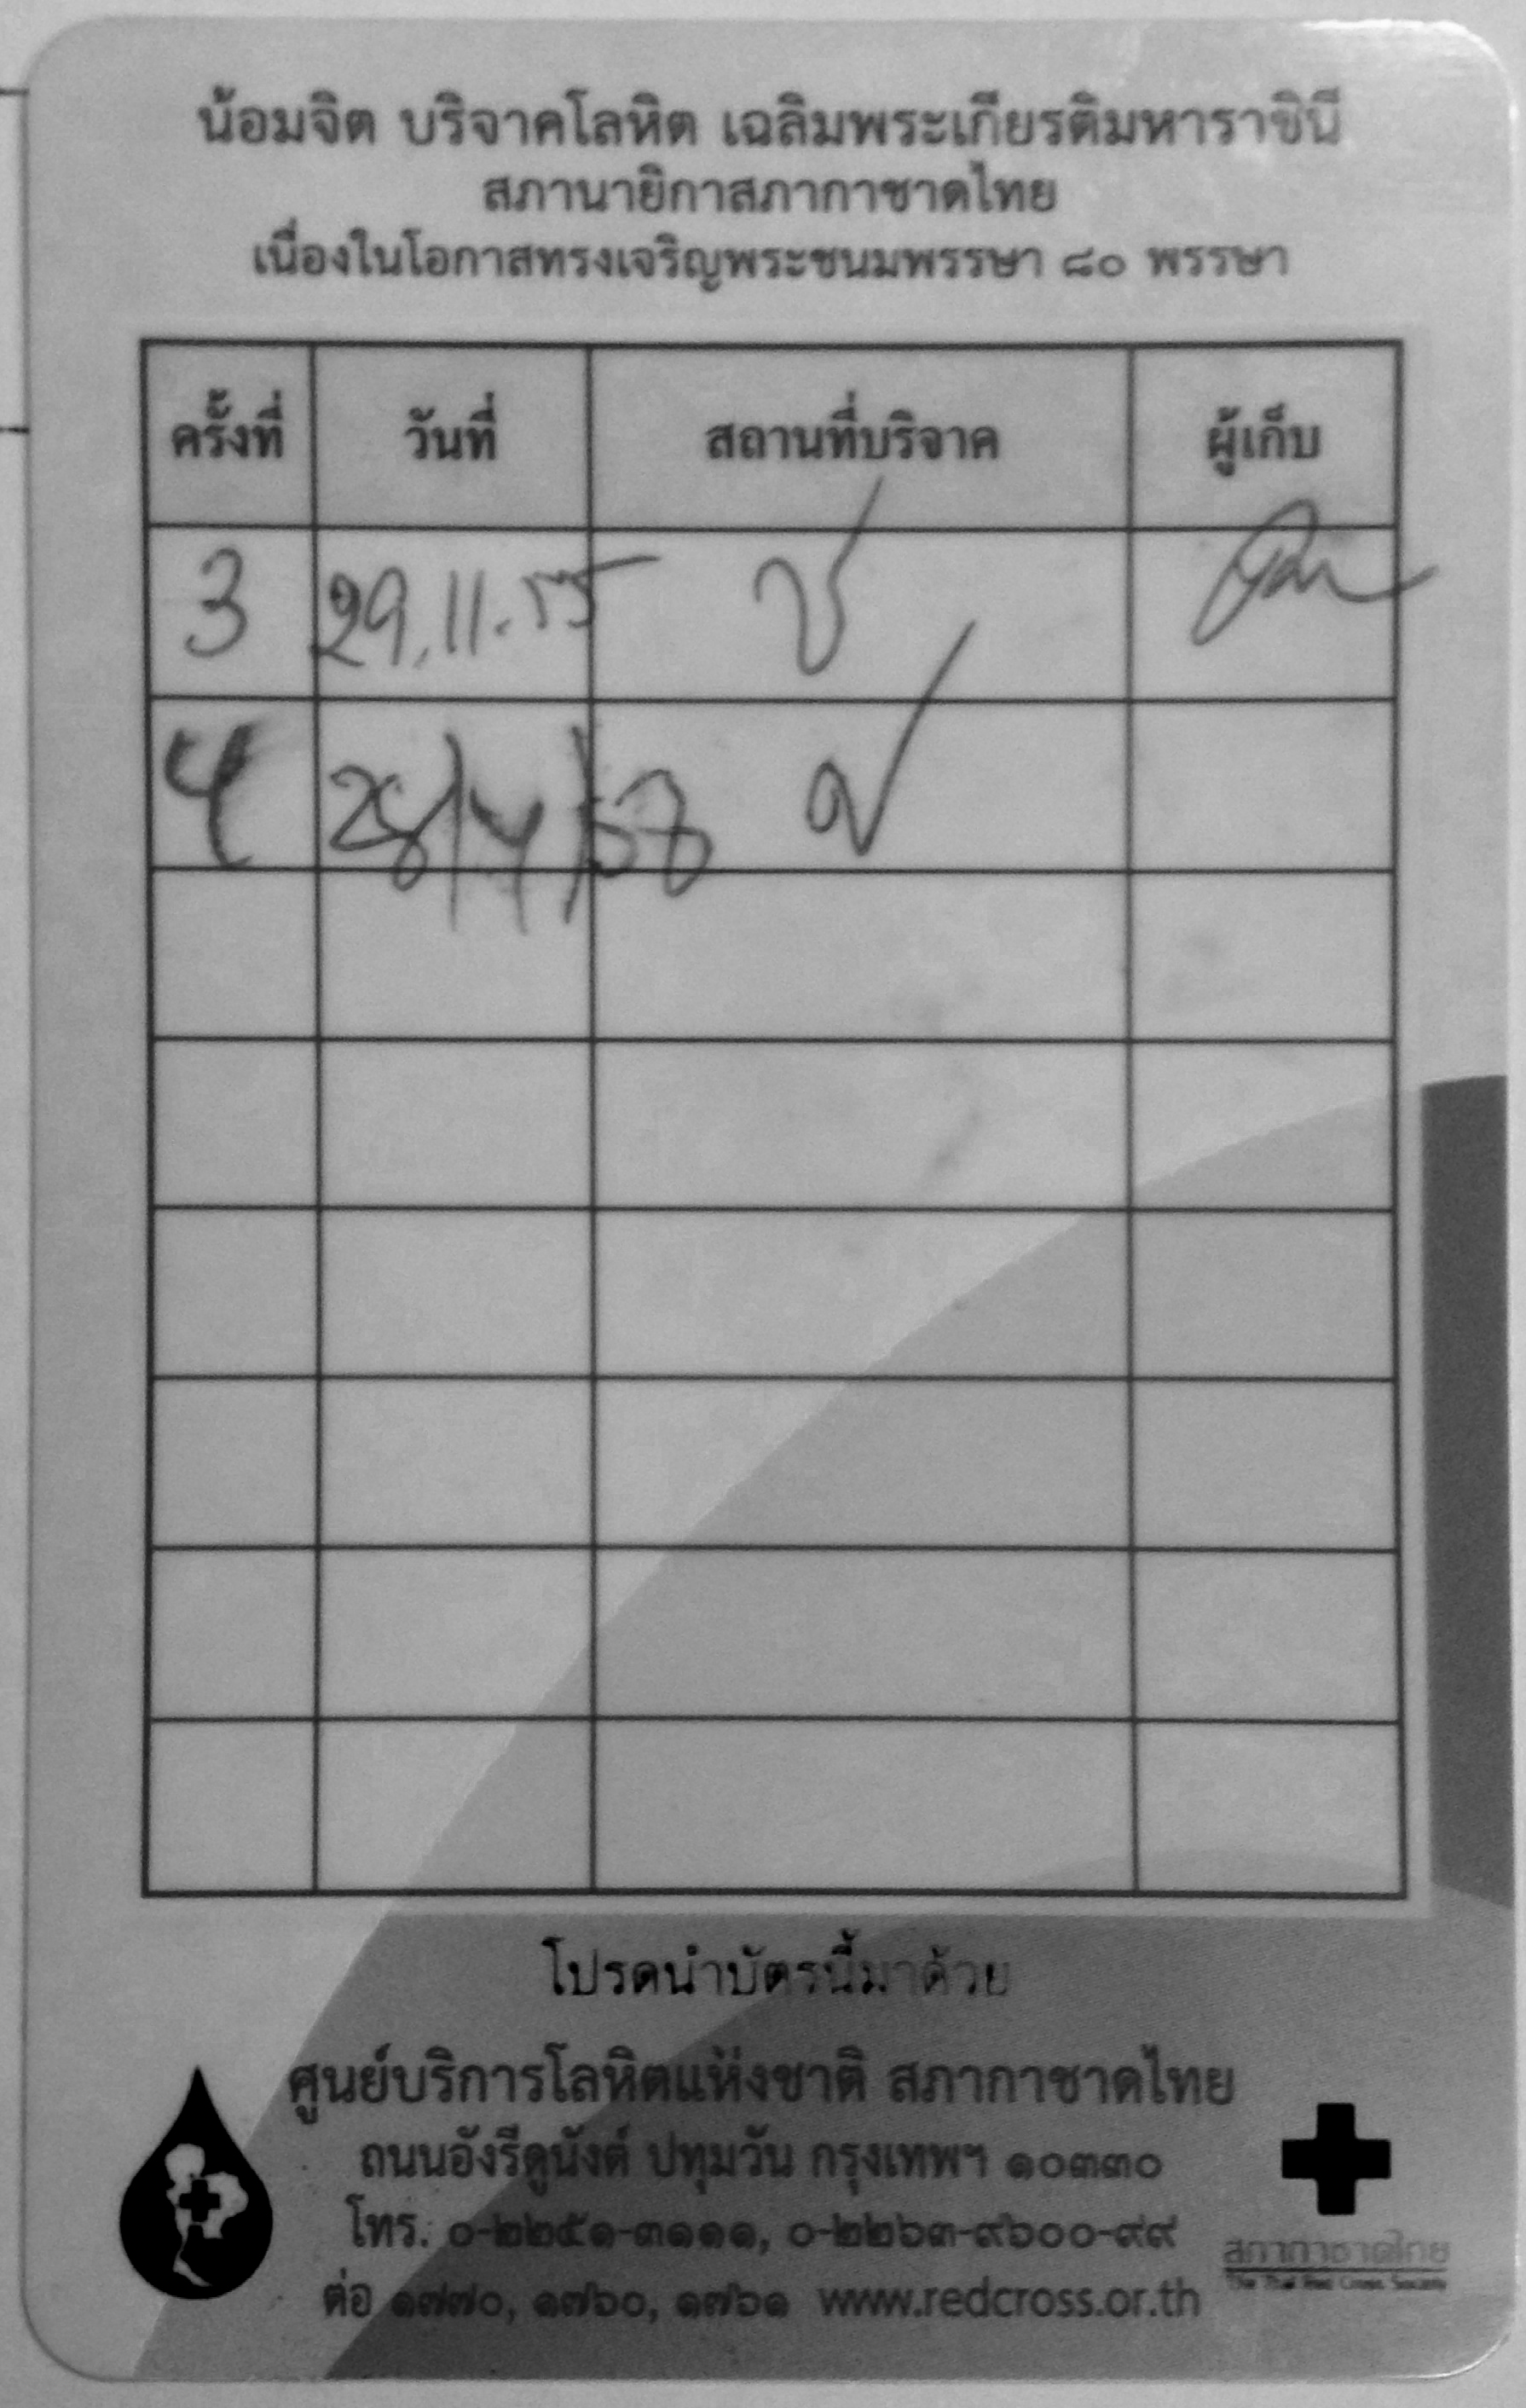 น้อมจิต บริจาคโลหิต เฉลิมพระเกียรติมหาราชินี
สภานายิกาสภากาชาดไทย
เนื่องในโอกาสทรงเจริญพระชนมพรรษา ๘๐ พรรษา
ครั้งที่ วันที่ สถานที่บริจาค ผู้เก็บ
3 29.11.55 ช
4 28/4/58
โปรดนำบัตรนี้มาด้วย
ศูนย์บริการโลหิตแห่งชาติ สภากาชาดไทย
ถนนอังรีดูนังต์ ปทุมวัน กรุงเทพฯ ๑๐๓๓๐
โทร. ๐-๒๒๕๑-๓๑๑๑, ๐-๒๒๖๓-๙๖๐๐-๙๙
ต่อ ๑๗๗๐, ๑๗๖๐, ๑๗๖๑ www.redcross.or.th
สภากาชาดไทย
The Thai Red Cross Society